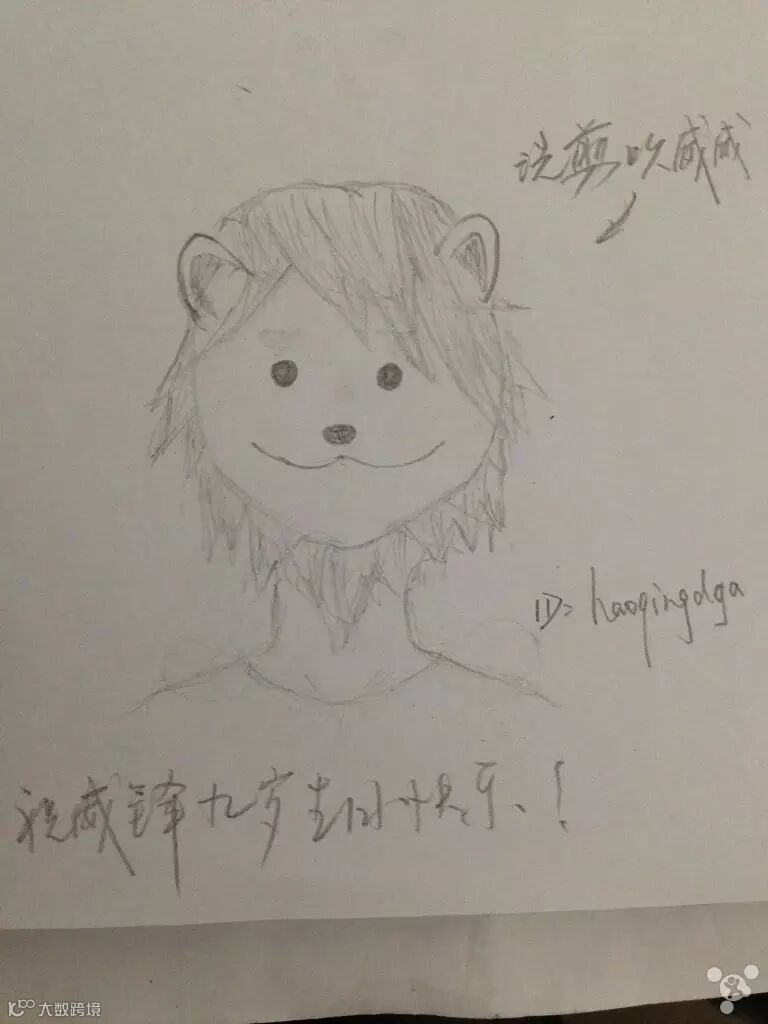 洗剪吹威威
ID: haoqingdga
祝威锋九岁生日快乐!
大数跨境